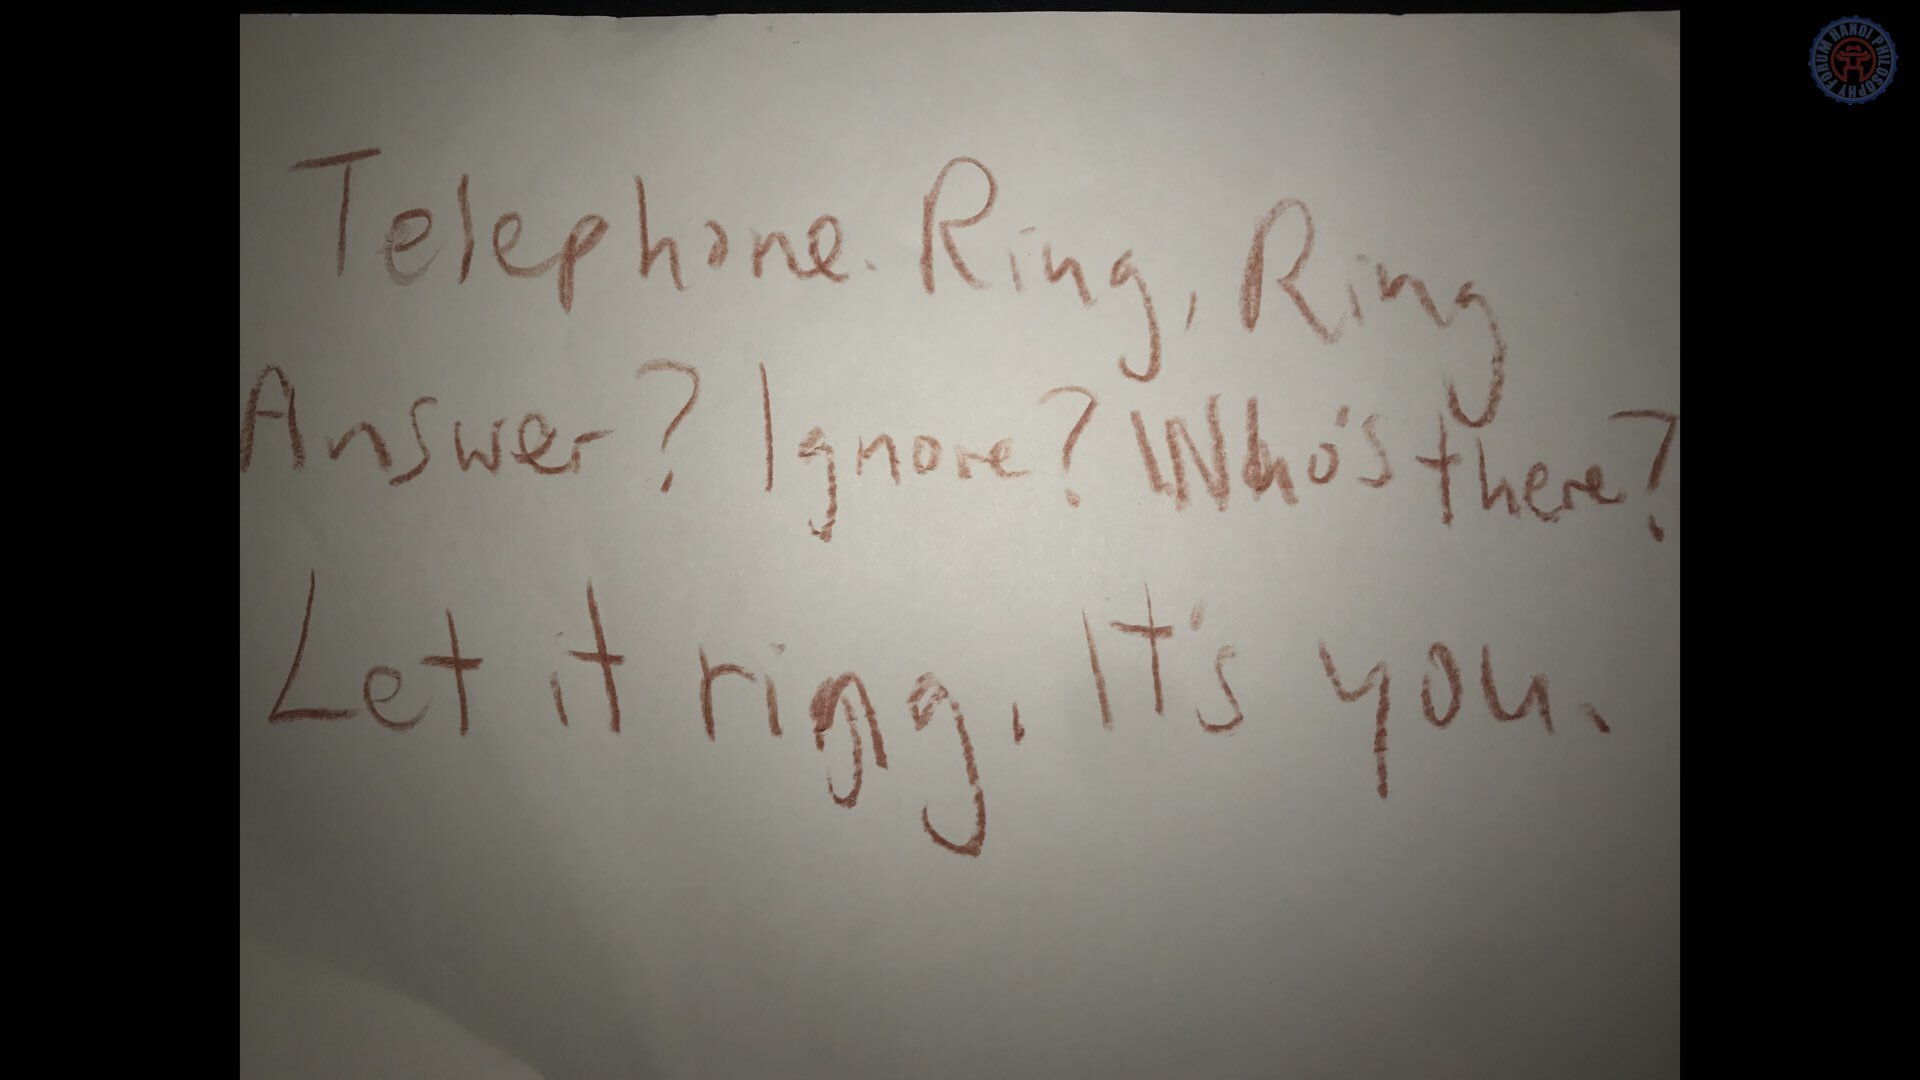 Telephone. Ring, Ring
Answer? Ignore? Who's there?
Let it ring. It's you.
FORUM HANOI PHILOSOPHY